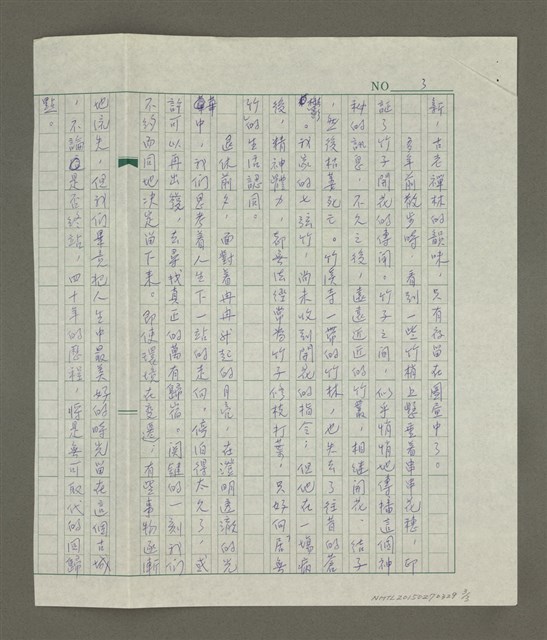 NO 3
新，古老禪林的韻味，只有存留在圖画中了。
五年前散步時，看到一些竹梢上懸垂着串串花穗，印
証了竹子開花的傳聞。竹子之間，似乎悄悄地傳播這個神
秘的訊息，不久之後，遠遠近近的竹叢，相繼開花、結子
，然後枯萎死亡。竹溪寺一帶的竹林，也失去了往昔的蒼
鬱。我家的七弦竹，尚未收到開花的指令，但他在一場病
後，精神體力，都無法經常為竹子修枝打葉，只好向居無
竹的生活認同。
退休前夕，面對着冉冉升起的月亮，在澄明透澈的光
華中，我們思考着人生下一站的走向。停泊得太久了，或
許可以再出發，去尋找真正的萬有歸宿。関鍵的一刻我們
不約而同地決定留下來。即使環境在变遷，有些事物逐漸
地流失，但我們畢竟把人生中最美好的時光留在這個古城
，不論是否終站，四十年的歷程，將是無可取代的回歸
點。
NMTL20150270329 3/3